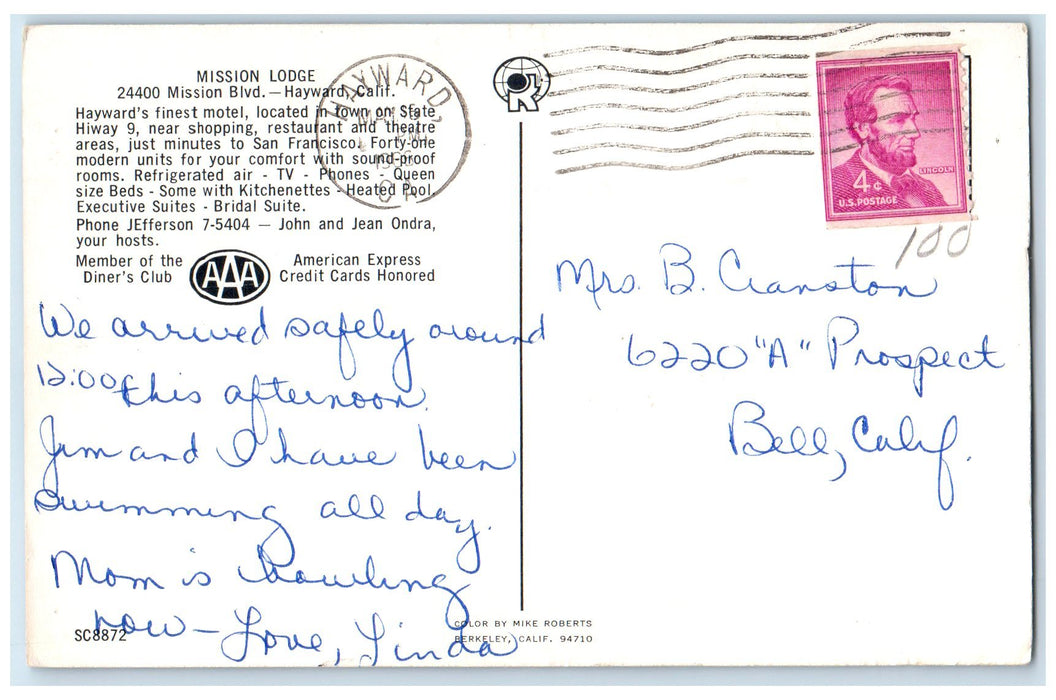 MISSION LODGE
24400 Mission Blvd. — Hayward, Calif.
Hayward's finest motel, located in town on State
Hiway 9, near shopping, restaurant and theatre
areas, just minutes to San Francisco. Forty-one
modern units for your comfort with sound-proof
rooms. Refrigerated air - TV - Phones - Queen
size Beds - Some with Kitchenettes - Heated Pool
Executive Suites - Bridal Suite.
Phone JEfferson 7-5404 — John and Jean Ondra,
your hosts.
Member of the
Diner's Club
AAA
American Express
Credit Cards Honored
We arrived safely around
12:00 this afternoon.
Jim and I have been
swimming all day.
Mom is bowling
now — Love, Linda
SC8872
COLOR BY MIKE ROBERTS
BERKELEY, CALIF. 94710
HAYWARD
CA
R
LINCOLN
4¢
U.S. POSTAGE
100
Mrs. B. Cranston
6220 "A" Prospect
Bell, Calif.